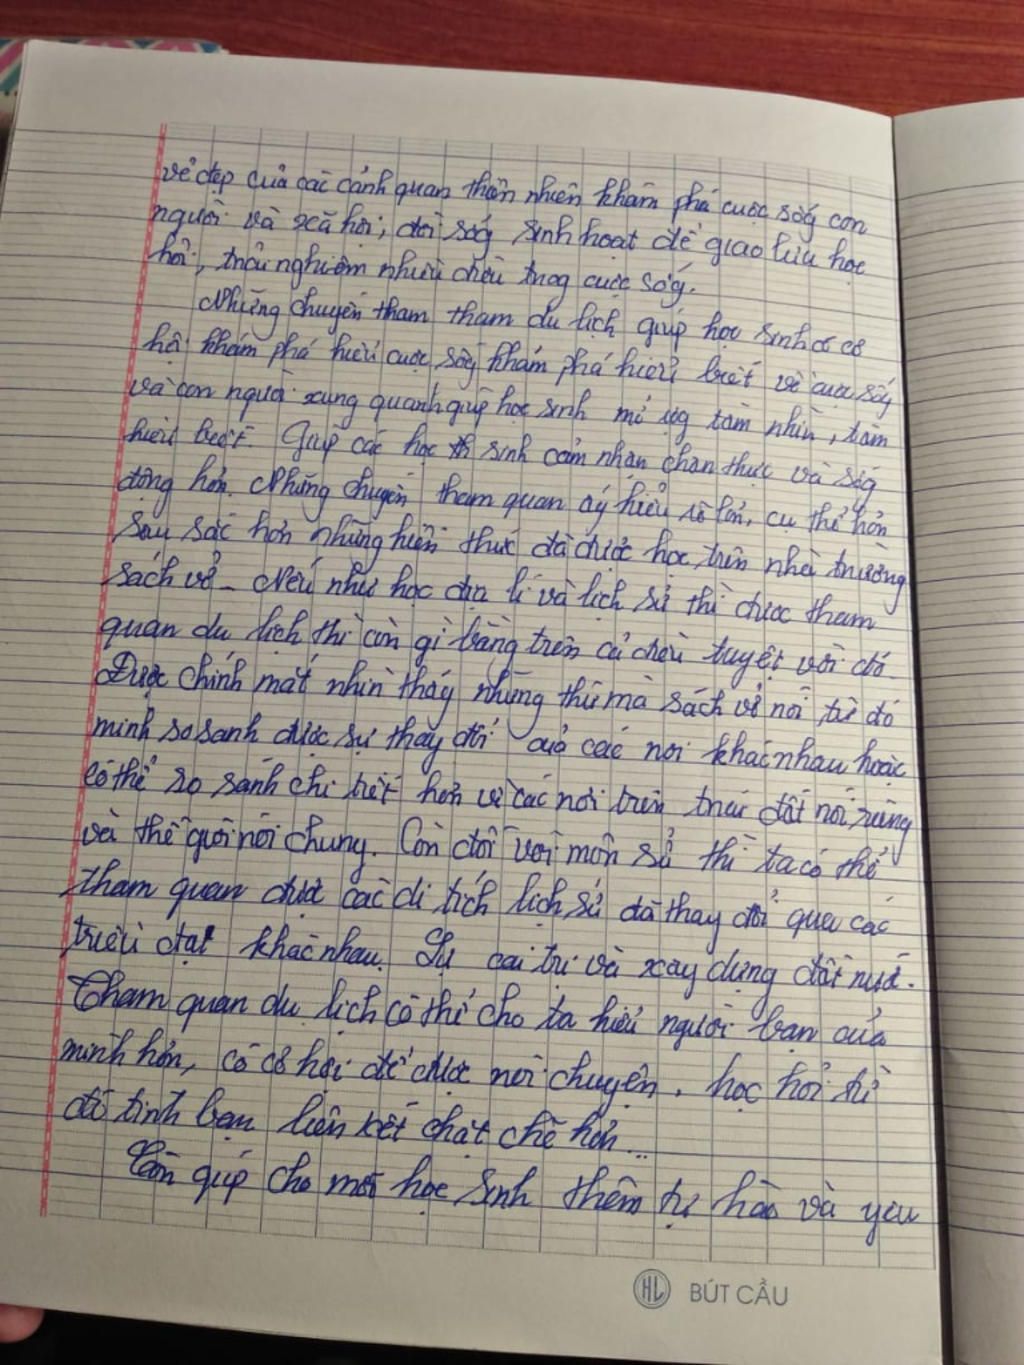 vẻ đẹp của các cảnh quan thiên nhiên khám phá cuộc sống con
người và xã hội, đời sống sinh hoạt để giao lưu học
hỏi, trải nghiệm nhiều điều trong cuộc sống.
Những chuyến tham tham du lịch giúp học sinh có cơ
hội khám phá hiểu cuộc sống khám phá hiểu biết về cuộc sống
và con người xung quanh giúp học sinh mở rộng tầm nhìn, tầm
hiểu biết. Giúp các học sinh cảm nhận chân thực và sống
động hơn. Những chuyến tham quan ấy hiểu rõ hơn, cụ thể hơn
sâu sắc hơn những kiến thức đã được học trên nhà trường
sách vở. Nếu như học địa lí và lịch sử thì được tham
quan du lịch thì còn gì bằng trên cả điều tuyệt vời đó.
Được chính mắt nhìn thấy những thứ mà sách vở nói từ đó
mình so sánh được sự thay đổi của các nơi khác nhau hoặc
có thể so sánh chi tiết hơn về các nơi trên trái đất nói riêng
và thế giới nói chung. Còn đối với môn sử thì ta có thể
tham quan được các di tích lịch sử đã thay đổi qua các
triều đại khác nhau. Sự cai trị và xây dựng đất nước.
Tham quan du lịch có thể cho ta hiểu người bạn của
mình hơn, có cơ hội để được nói chuyện, học hỏi từ
đó tình bạn liên kết chặt chẽ hơn...
Còn giúp cho mỗi học sinh thêm tự hào và yêu
HL BÚT CẦU